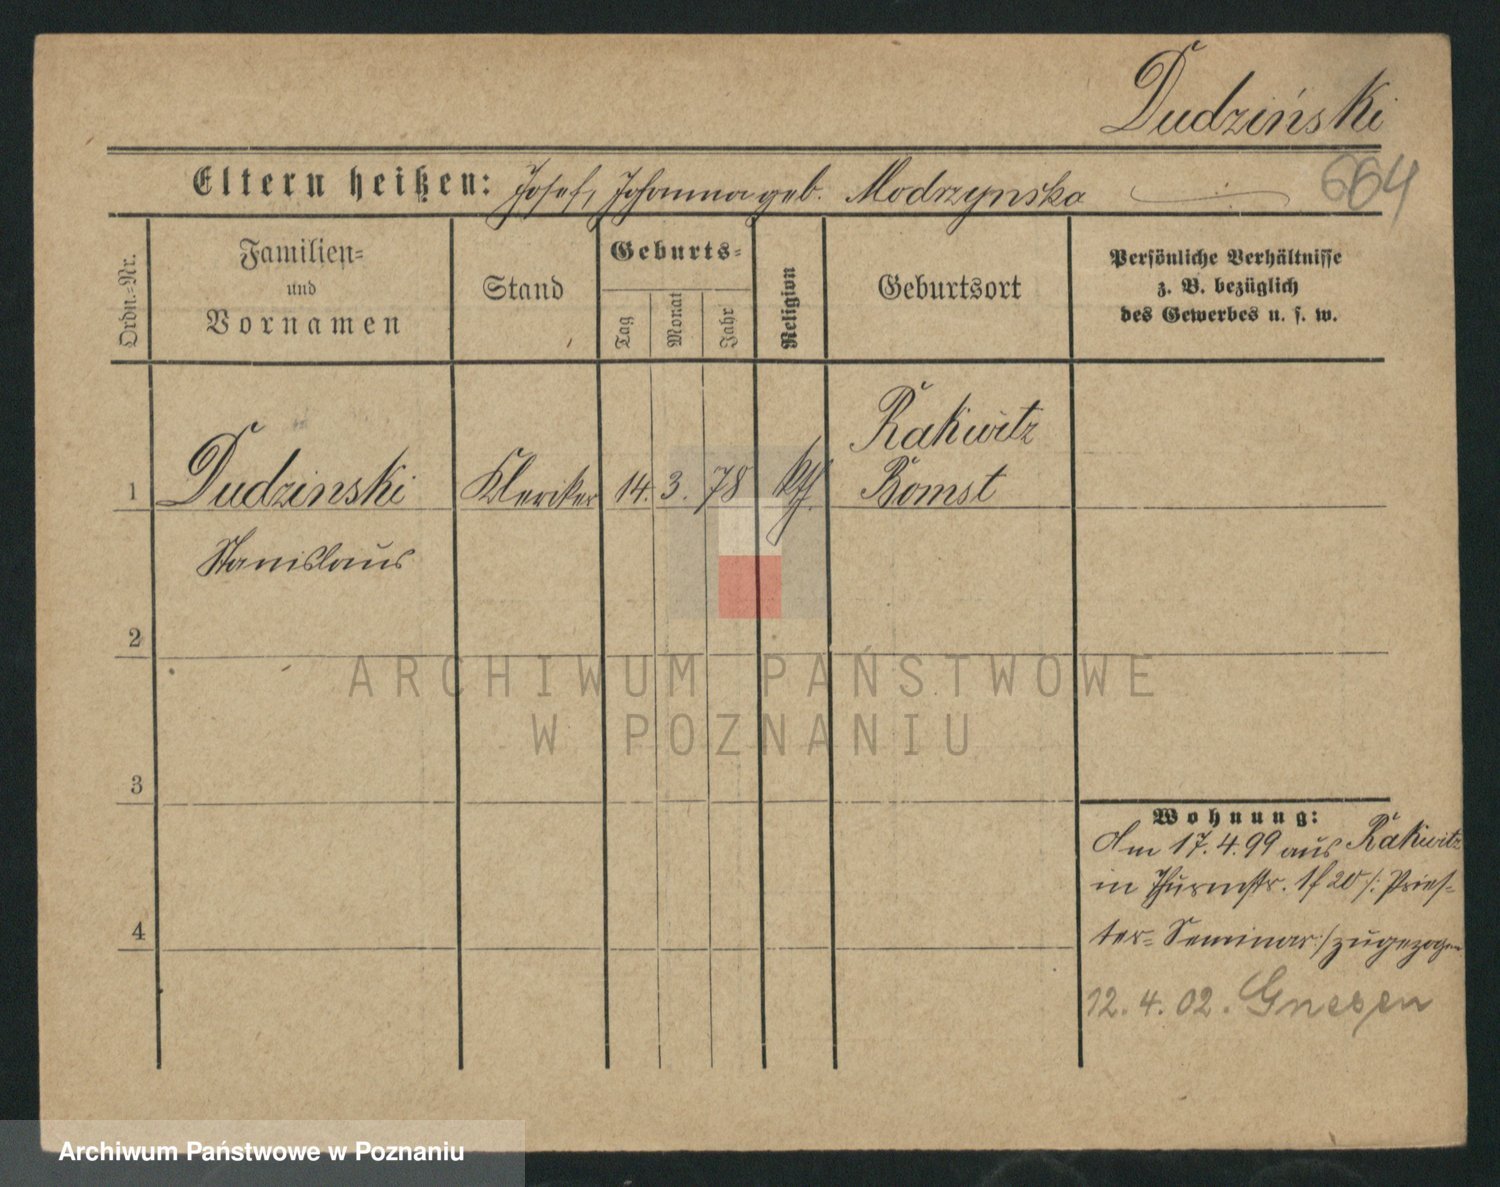 Dudziński
Eltern heißen: Josef, Johanna geb. Modrzynska
664
Ordn.-Nr.
Familien-
und
Vornamen
Stand
Geburts-
Tag
Monat
Jahr
Religion
Geburtsort
Persönliche Verhältnisse
z. B. bezüglich
des Gewerbes u. s. w.
Rakwitz
1 Dudzinski Kleriker 14. 3. 78 kth. Bomst
Stanislaus
2
ARCHIWUM PAŃSTWOWE
W POZNANIU
3
Wohnung:
Am 17.4.99 aus Rakwitz
in Thurmstr. 1f 20 /: Pries-
4
ter- Seminar:/ zugezogen
12.4.02. Gnesen
Archiwum Państwowe w Poznaniu